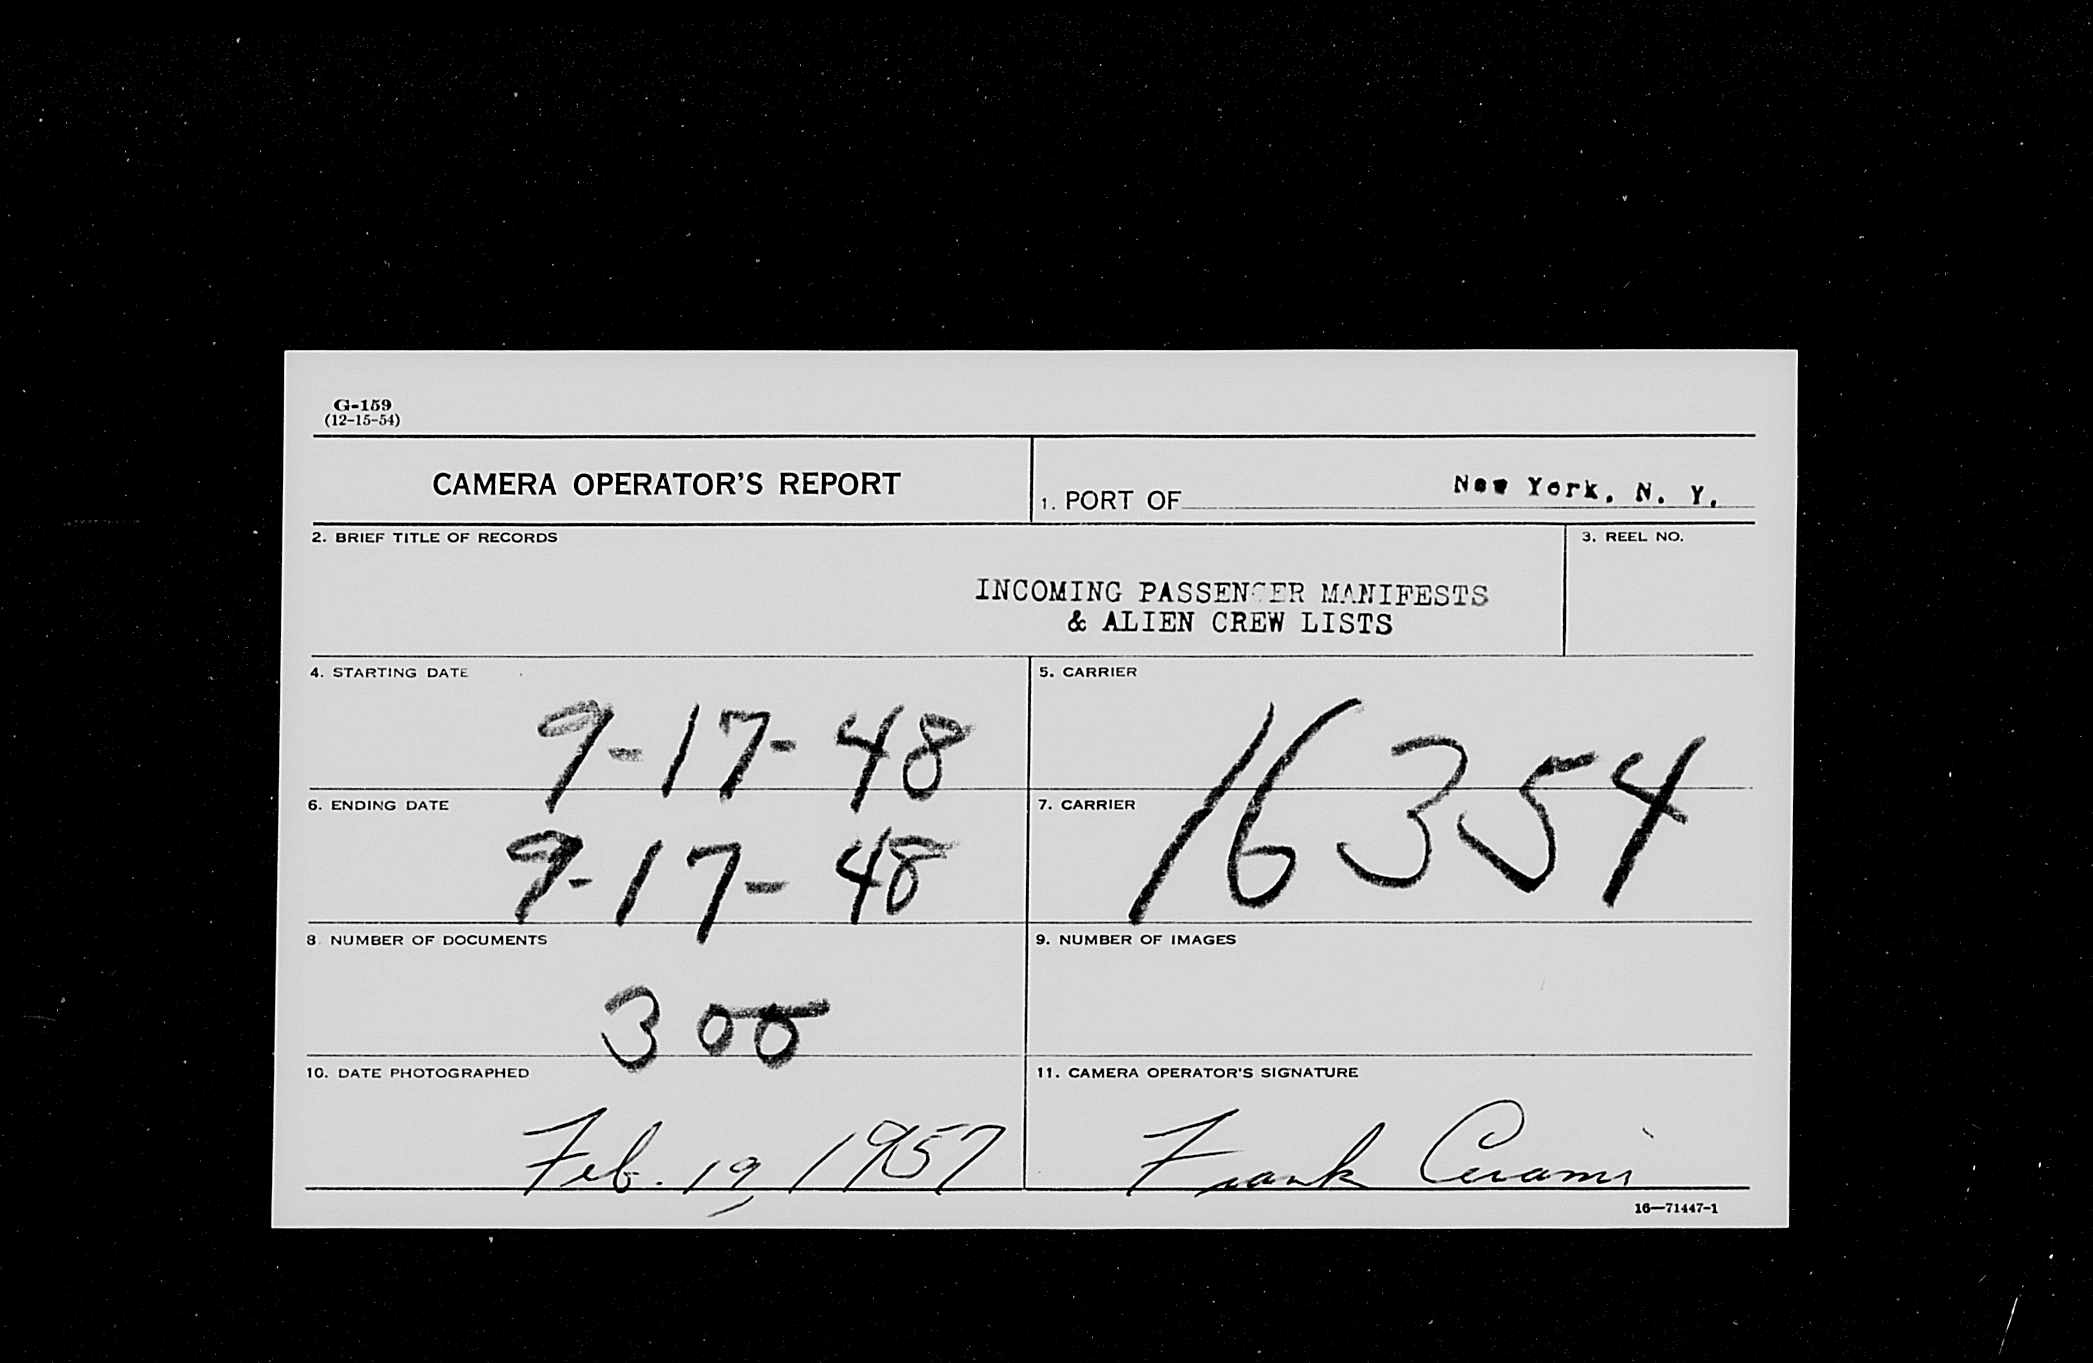 G-159
(12-15-54)
CAMERA OPERATOR'S REPORT
1. PORT OF New York, N. Y.
2. BRIEF TITLE OF RECORDS
3. REEL NO.
INCOMING PASSENGER MANIFESTS
& ALIEN CREW LISTS
4. STARTING DATE
9-17-48
5. CARRIER
16354
6. ENDING DATE
9-17-48
7. CARRIER
8. NUMBER OF DOCUMENTS
300
9. NUMBER OF IMAGES
10. DATE PHOTOGRAPHED
Feb. 19, 1957
11. CAMERA OPERATOR'S SIGNATURE
Frank Cerami
16—71447-1